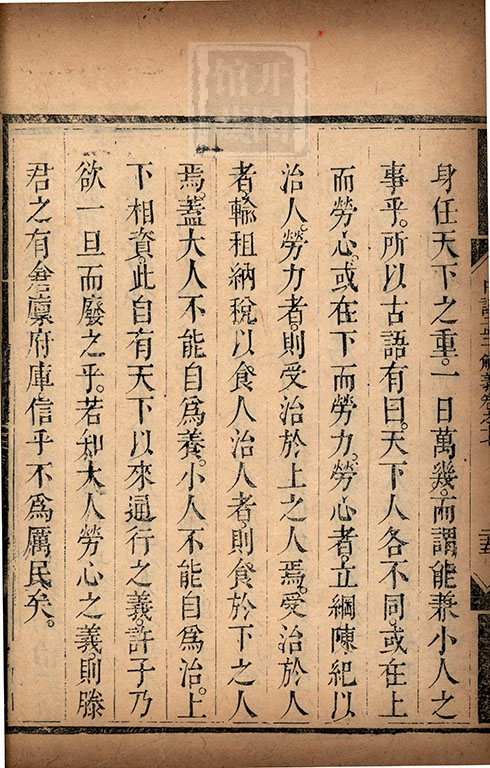 身任天下之重。一日萬幾。而謂能兼小人之
事乎。所以古語有曰。天下人各不同。或在上
而勞心。或在下而勞力。勞心者。立綱陳紀以
治人。勞力者。則受治於上之人焉。受治於人
者。輸租納稅以食人。治人者。則食於下之人
焉。蓋大人不能自爲養。小人不能自爲治。上
下相資。此自有天下以來通行之義。許子乃
欲一旦而廢之乎。若知大人勞心之義。則滕
君之有倉廩府庫。信乎不爲厲民矣。